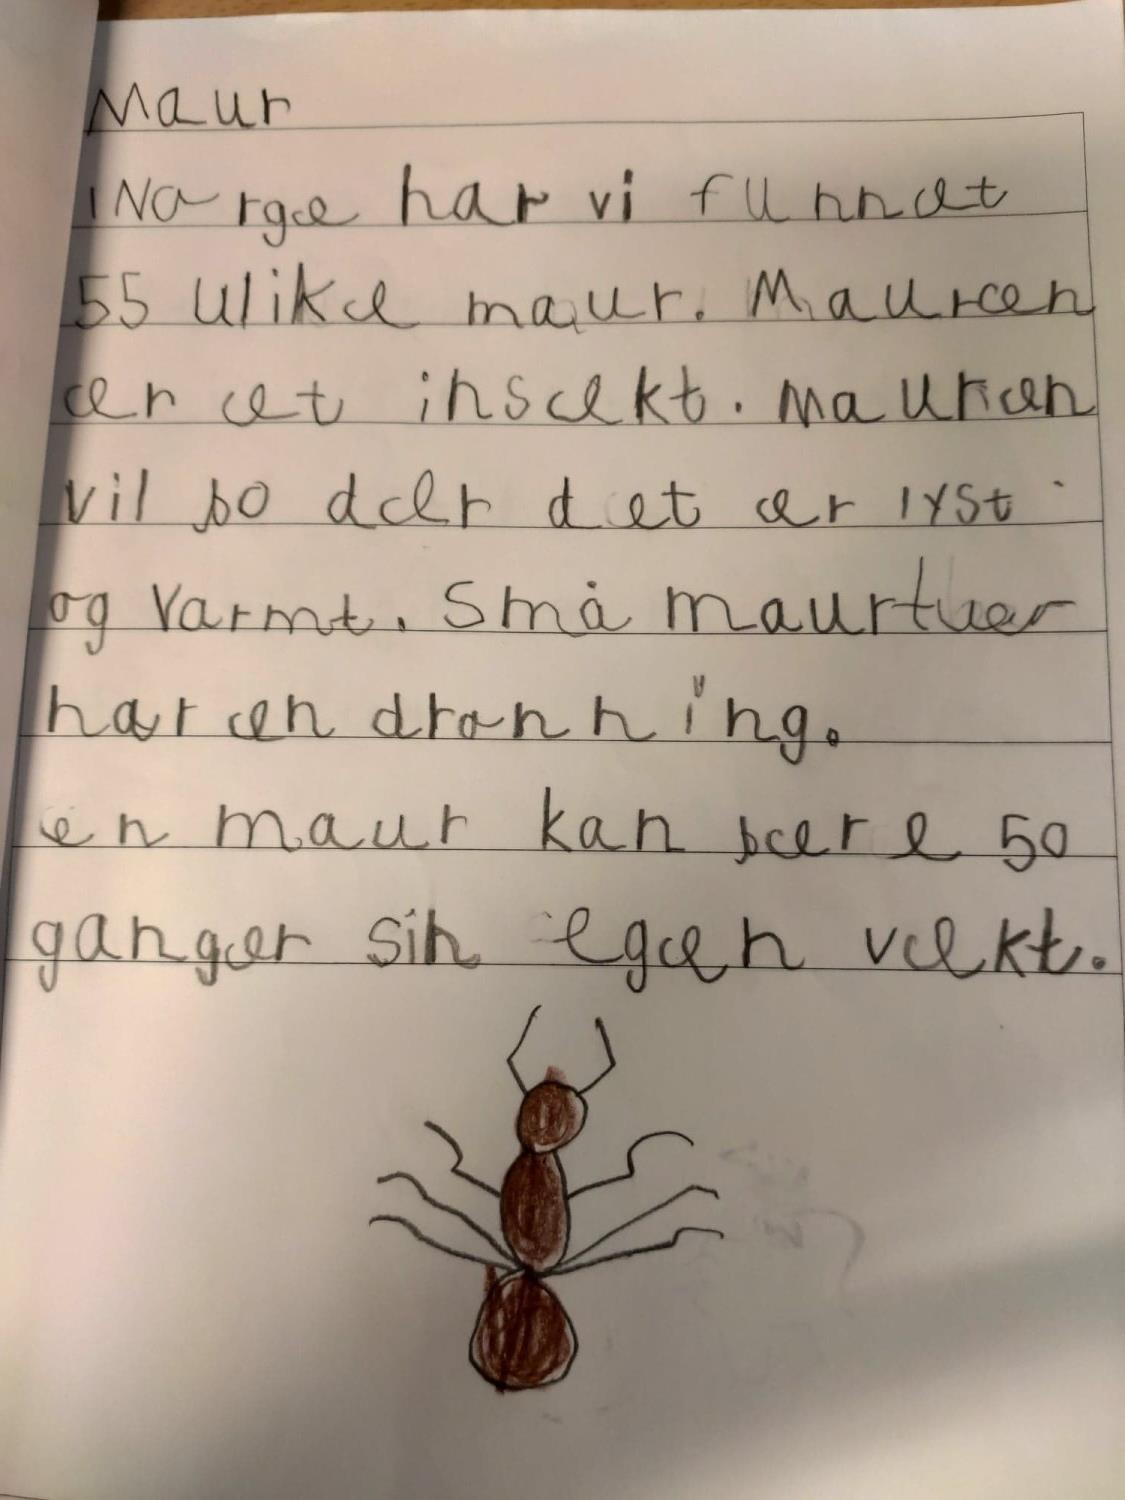 Maur
i Norge har vi funnet
55 ulike maur. Mauren
er et insekt. Mauren
vil bo der det er lyst
og varmt. Små maurtuer
har en dronning.
en maur kan bere 50
ganger sin egen vekt.